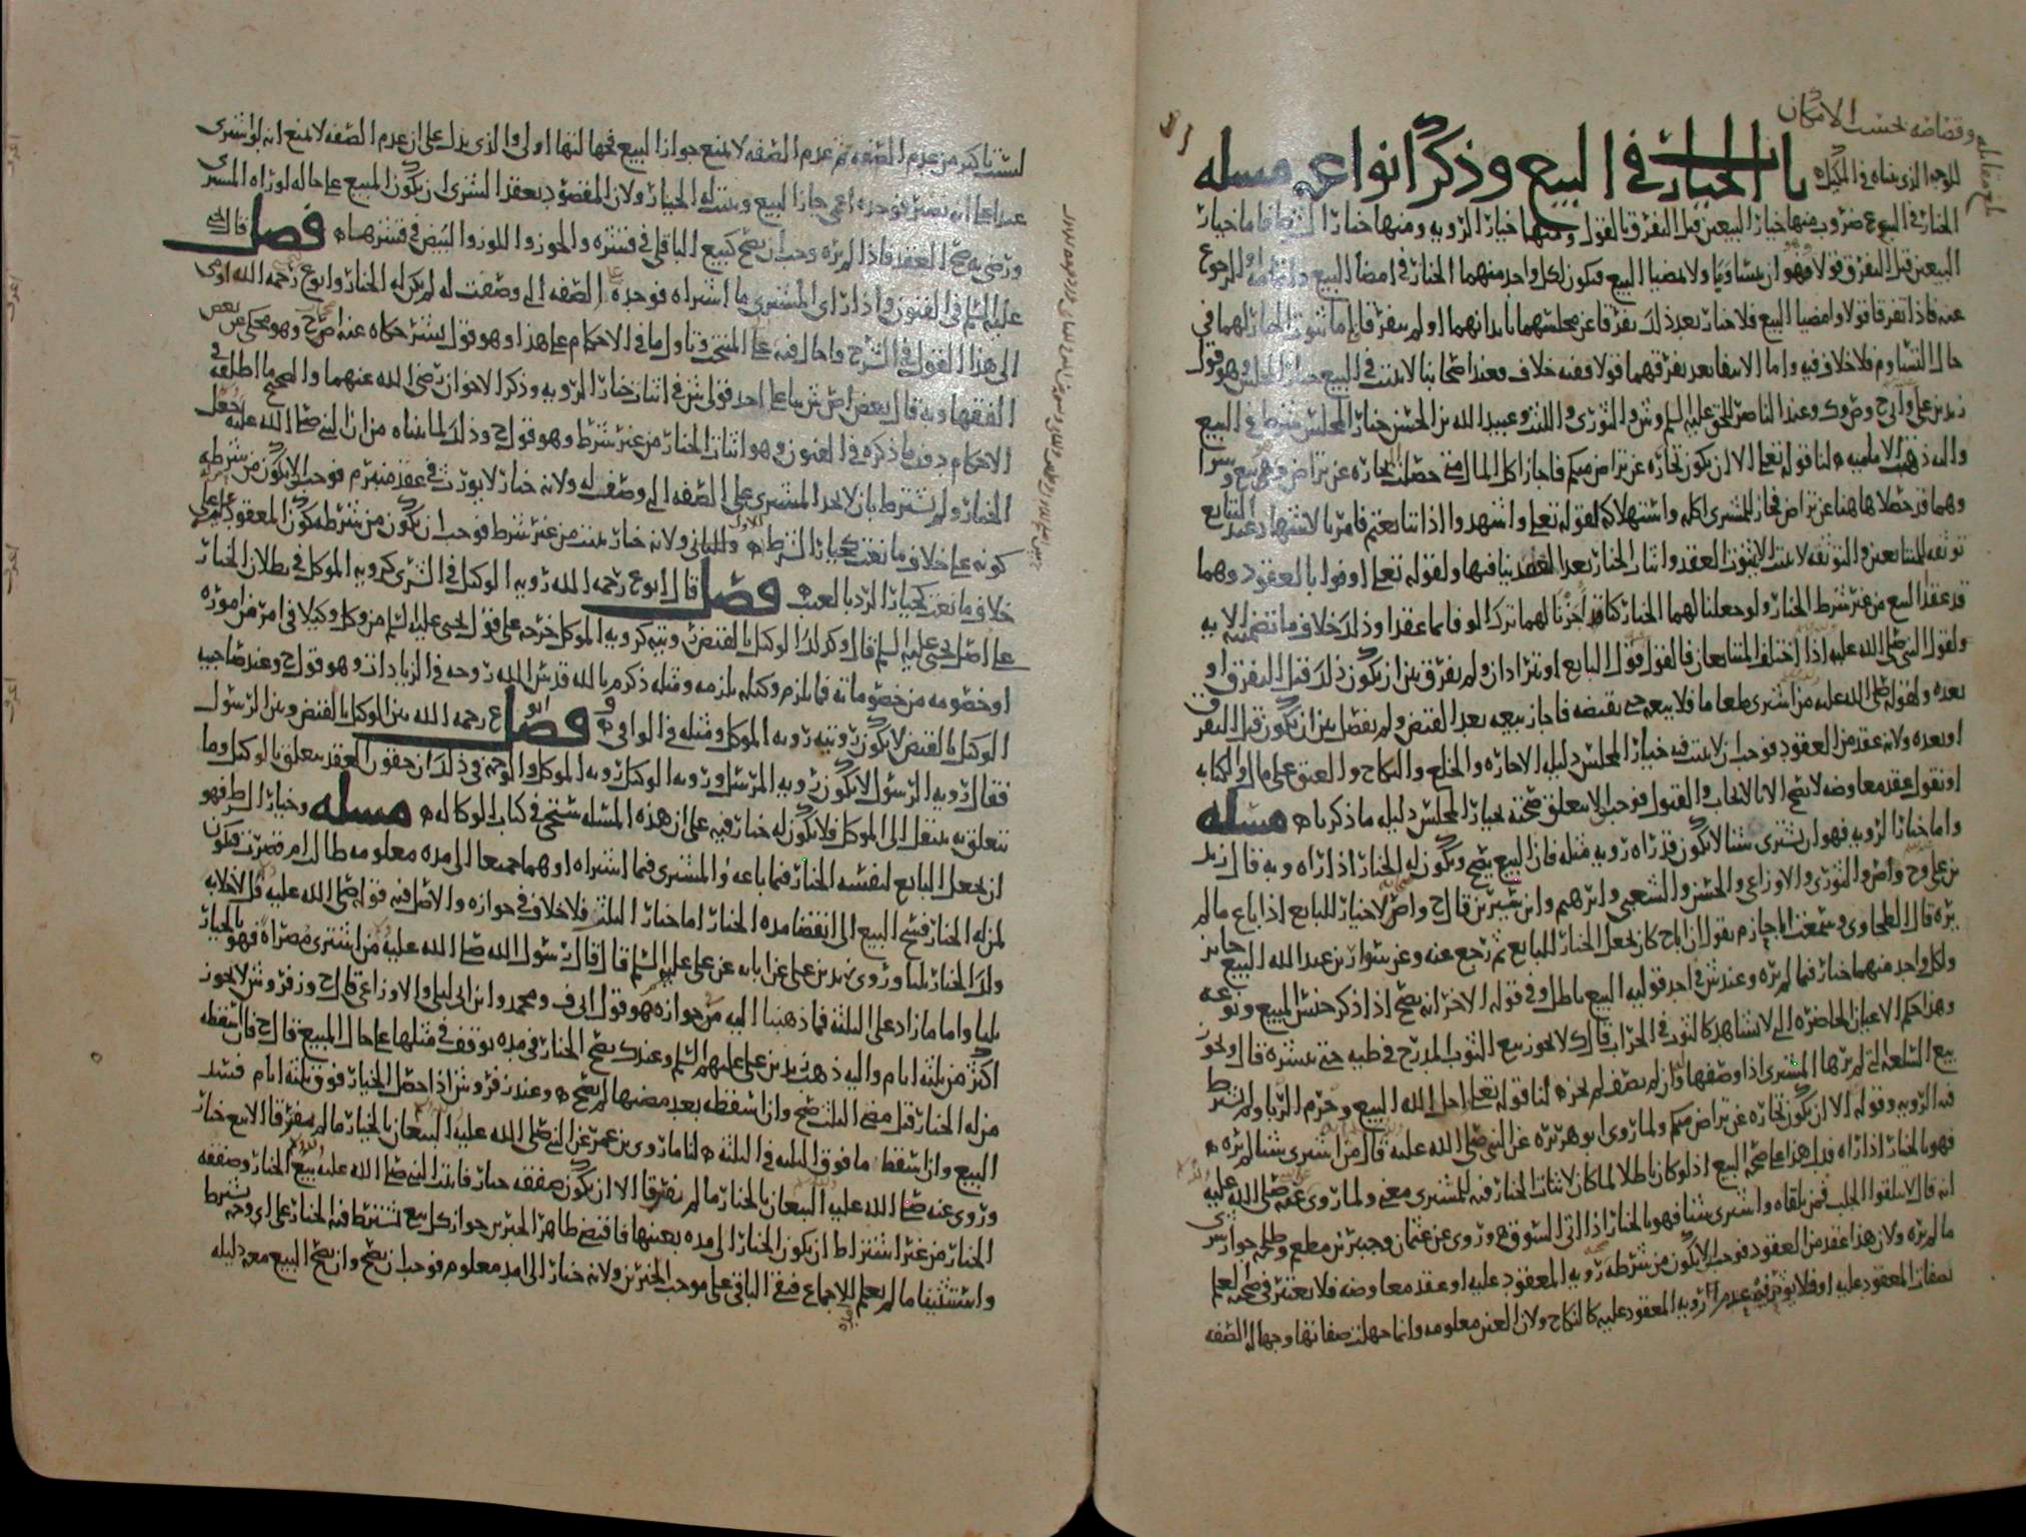 وقضاضه بحسب الامكان
للوجه الذي بيناه في المكيل باب الخيارات في البيع وذكر انواعه مسله
الخيار في البيوع ضروب منها خيار البيعين قبل التفرق بالقول ومنها خيار الرويه ومنها خيار الشرط فاما خيار
البيعين قبل التفرق قولا فهو ان يتساوما ولا يمضيا البيع فيكون لكل واحد منهما الخيار في امضا البيع والرجوع
عنه فاذا تفرقا قولا وامضيا البيع فلا خيار بعد ذلك تفرقا عن مجلسهما بابدانهما او لم يتفرقا اما ثبوت الخيار لهما في
حال التساوم فلا خلاف فيه واما الانتفا بعد تفرقهما قولا ففيه خلاف فعند اصحابنا لا يثبت في البيع خيار المجلس وهو قول
زيد بن علي وح وك وعند الناصر للحق عليه السلم وش والثوري والليث وعبيد الله بن الحسن خيار المجلس شرط في البيع
واليه ذهب الاماميه لنا قوله تعلى الا ان تكون تجاره عن تراض منكم فاجاز اكل المال متى حصلت تجاره عن تراض
وهما قد حصلا هاهنا عن تراض فجاز للمشتري اكله واستهلاكه لقوله تعلى واشهدوا اذا تبايعتم فامر بالاشهاد عند التبايع
توثقه للمتبايعين والتوثقه لا تثبت الا بثبوت العقد واثبات الخيار بعد العقد ينافيها ولقوله تعلى اوفوا بالعقود وهما
قد عقدا البيع من غير شرط الخيار ولو جعلنا لهما الخيار كنا قد اجزنا لهما ترك الوفا بما عقدا وذلك خلاف ما تضمنته الايه
ولقول النبي صلى الله عليه اذا اختلف المتبايعان فالقول قول البايع او يترادان ولم يفرق بين ان يكون ذلك قبل التفرق او
بعده ولقوله صلى الله عليه من اشترى طعاما فلا يبيعه حتى يقبضه فاجاز بيعه بعد القبض ولم يفصل بين ان يكون قبل التفرق
او بعده ولانه عقد من العقود فوجب ان لا يثبت فيه خيار المجلس دليله الاجاره والخلع والنكاح والعتق على مال والكتابه
او نقول عقد معاوضه لا يصح الا بالايجاب والقبول فوجب الا يتعلق صحته بخيار المجلس دليله ما ذكرناه مسله
واما خيار الرويه فهو ان يشتري شيا لا يكون قد راه رويه مثله فان البيع يصح ويكون له الخيار اذا راه وبه قال زيد
بن علي وح واص والثوري والاوزاعي والحسن والشعبي وابرهيم وابن سيرين قال ح واص لا خيار للبايع اذا باع ما لم
يره قال الطحاوي وسمعت ابا حازم يقول ان اباح كان يجعل الخيار للبايع ثم رجع عنه وعن سوار بن عبد الله البيع جايز
ولكل واحد منهما خيار فيما لم يره وعند ش في احد قوليه البيع باطل وفي قوله الاخر انه يصح اذا ذكر جنس المبيع ونوعه
وهذا حكم الاعيان الحاضره التي لا تشاهد كالثوب في الجراب قال ك لا يجوز بيع الثوب المدرج في طيه حتى ينشره قال ويجوز
بيع السلعه التي لم يرها المشتري اذا وصفها وان لم يصف لم يجز لنا قوله تعلى احل الله البيع وحرم الربا ولم يشرط
فيه الرويه وقوله الا ان تكون تجاره عن تراض منكم ولما روى ابو هريره عن النبي صلى الله عليه قال من اشترى شيا لم يره
فهو بالخيار اذا راه فدل هذا على صحه البيع اذ لو كان باطلا لما كان لاثبات الخيار فيه للمشتري معنى ولما روي عنه صلى الله عليه
انه قال لا تتلقوا الجلب فمن تلقاه واشترى شيا فهو بالخيار اذا اتى السوق وروي عن عثمان وجبير بن مطعم وطلحه جواز شرى
ما لم يره ولان هذا عقد من العقود فوجب الا يكون من شرطه رويه المعقود عليه او عقد معاوضه فلا يعتبر في صحته العلم
بصفات المعقود عليه او فلا يوثر فيه عدم الرويه المعقود عليه كالنكاح ولان العين معلومه وانما جهلت صفاتها وجهاله الصفه
ليست باكبر من عدم الصفه ثم عدم الصفه لا يمنع جواز البيع فجهالتها اولى والذي يدل على ان عدم الصفه لا يمنع انه لو اشترى
عبدا على انه بصير فوجده اعمى جاز البيع ويثبت له الخيار ولان المقصود بعقد الشرى ان يكون المبيع على حاله لو راه المشتري
ورضي به صح العقد فاذا لم يره وجب ان يصح كبيع الباقلى في قشره والجوز واللوز والبيض في قشرهما فصل قال
عليه السلم في الفنون واذا راى المشتري ما اشتراه فوجده على الصفه التي وصفت له لم يكن له الخيار وابوع رحمه الله اومى
الى هذا القول في الشرح واحال فيه على المنتخب وتاول ما في الاحكام على هذا وهو قول حكاه عنه اصح وهو محكي عن بعض
الفقها وبه قال بعض اص ش بنا على احد قولي ش في اثبات خيار الرويه وذكر الاخوان رضي الله عنهما والصحيح ما اطلقه في
الاحكام دون ما ذكره في الفنون وهو اثبات الخيار من غير شرط وهو قول ح وذلك لما بيناه من ان النبي صلى الله عليه جعل
الخيار ولم يشترط بان لا يجد المشتري على الصفه التي وصفت له ولانه خيار لا يورث في عقد منبرم فوجب الا يكون من شرطه
كونه على خلاف ما نعت كخيار الشرط والثاني ولانه خيار يثبت من غير شرط فوجب ان يكون من شرطه كون المعقود عليه على
خلاف ما نعت كخيار الرد بالعيب فصل قال ابوع رحمه الله رويه الوكيل في الشرى كرويه الموكل في بطلان الخيار
على اصل يحيى عليه السلم قال وكذلك الوكيل بالقبض رويته كرويه الموكل خرجه على قول يحيى عليه السلم من وكل وكيلا في امر من اموره
او خصومه من خصوماته فما يلزم وكيله يلزمه ومثله ذكر م بالله قدس الله روحه في الزيادات وهو قول ح وعند صاحبيه
الوكيل بالقبض لا يكون رويته رويه الموكل ومثله في الوافي فصل وفرق ابوع رحمه الله بين الوكيل بالقبض وبين الرسول
فقال رويه الرسول لا يكون رويه المرسل ورويه الوكيل رويه الموكل والوجه في ذلك ان حقوق العقد يتعلق بالوكيل وما
يتعلق به ينتقل الى الموكل فلا يكون له خيار فيه على ان هذه المسله ستجي في كتاب الوكاله مسله وخيار الشرط فهو
ان يجعل البايع لنفسه الخيار فيما باعه والمشتري فيما اشتراه او هما جميعا الى مده معلومه طالت ام قصرت فيكون
لمن له الخيار فسخ البيع الى انقضا مده الخيار اما خيار الثلث فلا خلاف في جوازه والاصل فيه قوله صلى الله عليه قل لا خلابه
ولك الخيار ثلثا وروى زيد بن علي عن ابايه عن علي عليه السلم قال قال رسول الله صلى الله عليه من اشترى مصراه فهو بالخيار
ثلثا واما ما زاد على الثلثه فما ذهبنا اليه من جوازه هو قول ابي ف ومحمد وابن ابي ليلى والاوزاعي قال ح وزفر وش لا يجوز
اكثر من ثلثه ايام واليه ذهب زيد بن علي عليهم السلم وعند ك يصح الخيار في مده يوقف في مثلها على حال المبيع قال ح فان اسقطه
من له الخيار قبل مضي الثلث صح وان اسقطه بعد مضيها لم يصح وعند زفر وش اذا حصل الخيار فوق ثلثه ايام فسد
البيع وان اسقط ما فوق الثلثه في الثلثه لنا ما روى بن عمر عن النبي صلى الله عليه البيعان بالخيار ما لم يتفرقا الا بيع خيار
وروي عنه صلى الله عليه البيعان بالخيار ما لم يتفرقا الا ان يكون صفقه خيار فاثبت النبي صلى الله عليه بيع الخيار وصفقه
الخيار من غير اشتراط ان يكون الخيار الى مده بعينها فاقتضى ظاهر الخبرين جواز كل بيع يشترط فيه الخيار على اي وجه شرط
واستثنينا ما لم يعلم للاجماع فبقي الباقي على موجب الخبرين ولانه خيار الى امد معلوم فوجب ان يصح وان يصح البيع معه دليله